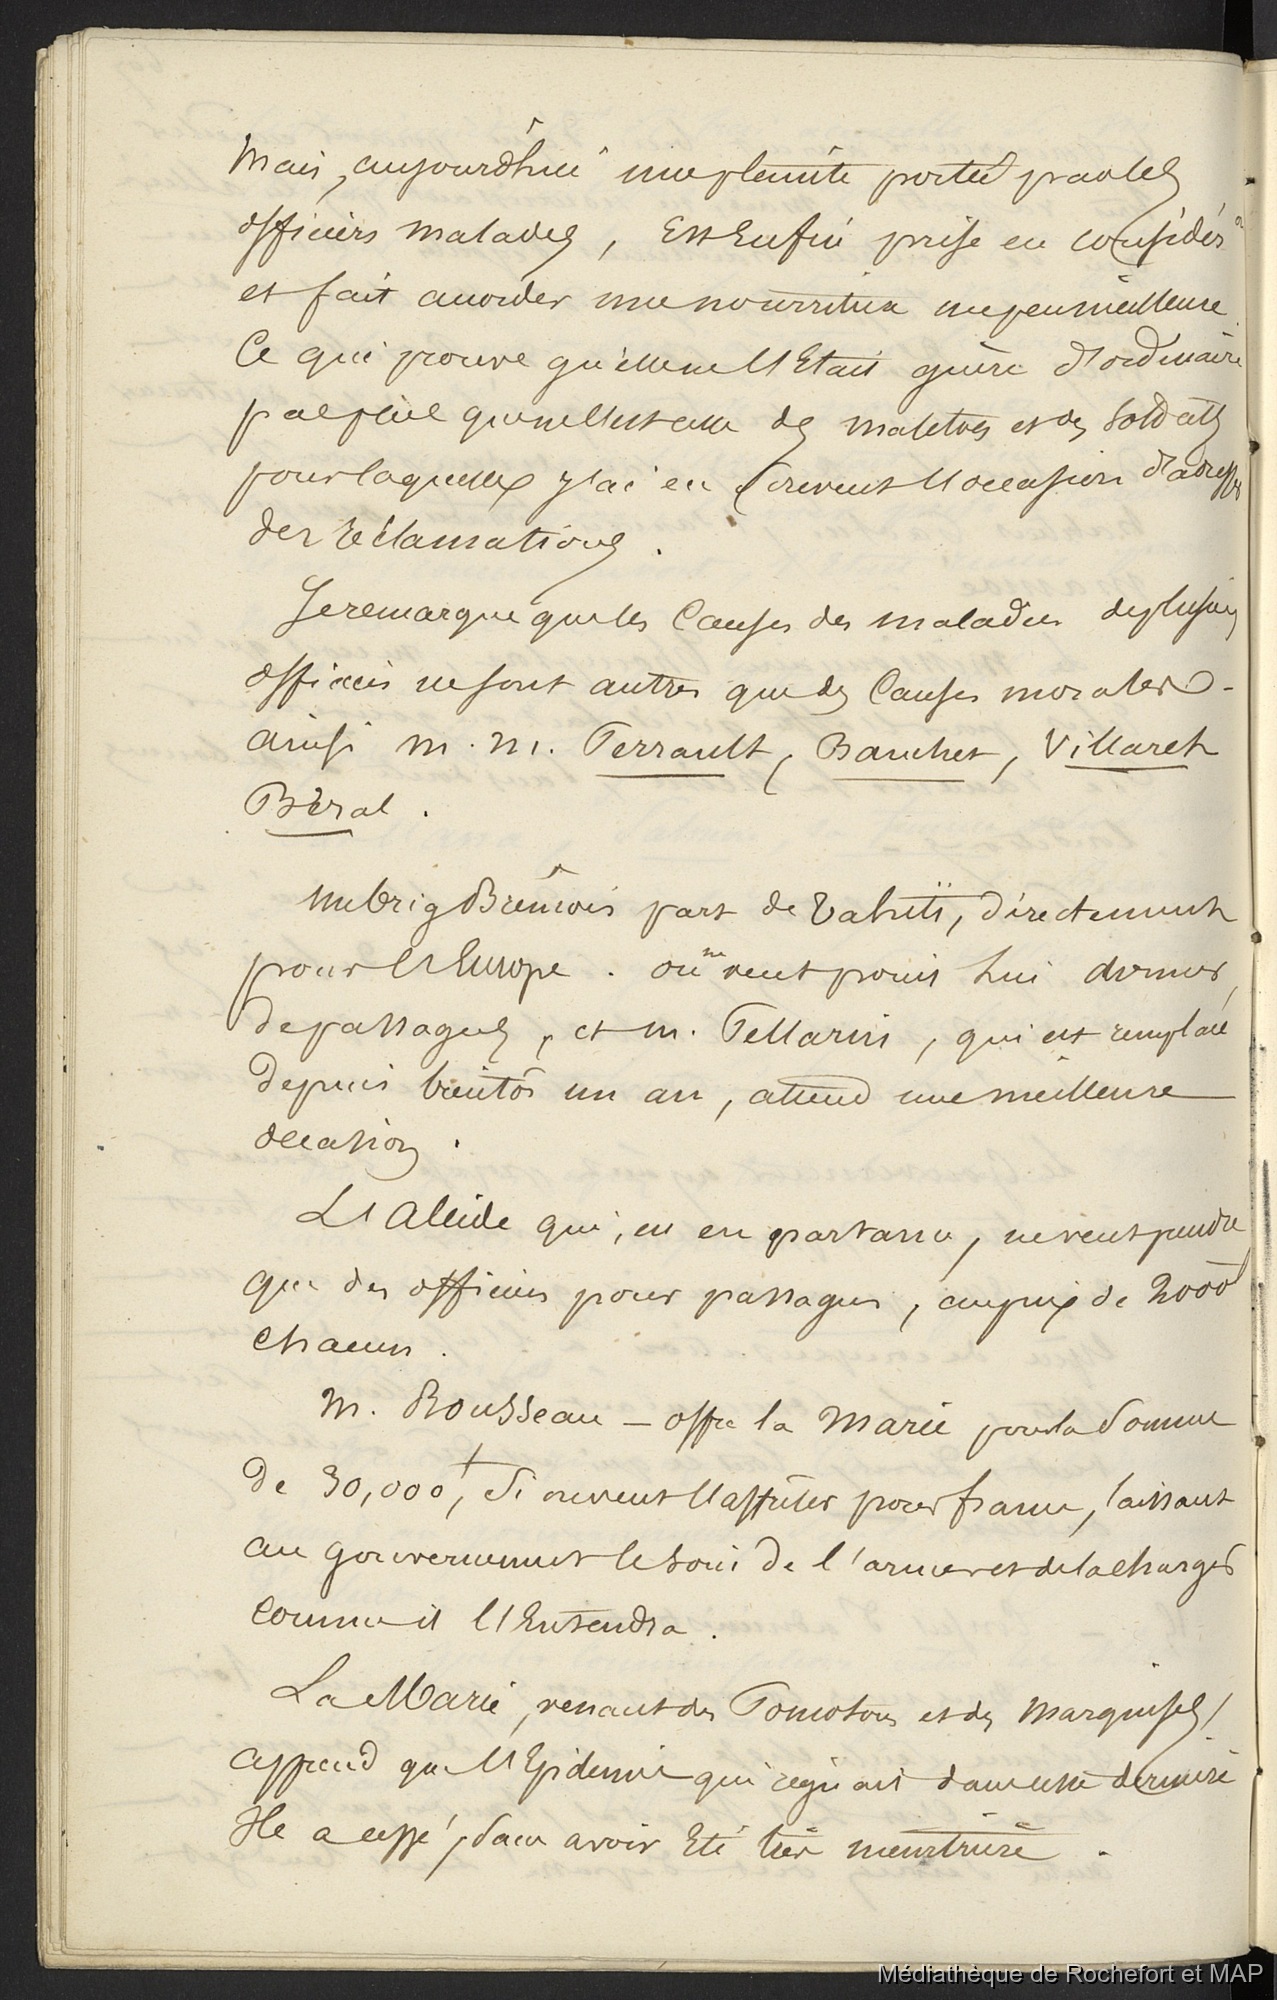 Mais, aujourd'hui une plainte portée par les
officiers malades, Est Enfin prise en considér.on
et fait accorder une nourriture un peu meilleure.
Ce qui prouve qu'elle ne l'Etait guère d'ordinaire
pas plus que ne l'est celle des matelots et des soldats
pour laquelle j'ai eu souvent l'occasion d'adresser
des réclamations.
Je remarque que les Causes des maladies de plusieurs
officiers ne sont autres que des Causes morales -
ainsi m. m. Perrault, Bauchet, Villaret
Béral.
un brig Brêmois part de Tahiti, directement
pour l'Europe. on ne veut point lui donner
de passagers, et m. Pellarin, qui est remplacé
depuis bientôt un an, attend une meilleure
occasion.
L'Alcide qui, en partance, ne veut prendre
que des officiers pour passagers, au prix de 2000f
chacun.
M. Rousseau - offre la Marie pour la somme
de 30,000f, si on veut l'affréter pour france, laissant
au gouvernement le soin de l'armer et de la charger
comme il l'Entendra.
La Marie, venant des Pomotous et des Marquises,
apprend que l'Epidémie qui régnait dans cette dernière
Ile a cessé, sans avoir Eté très meurtrière.
Médiathèque de Rochefort et MAP